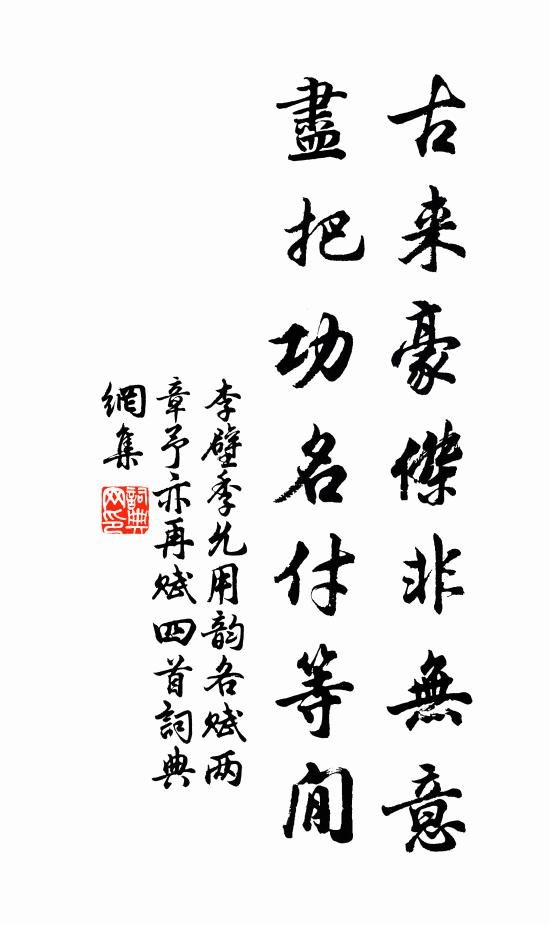 古来豪傑非無意
盡把功名付等閒
李壁季允用韵各赋两
章予亦再赋四首詞典
網集
詞典網印